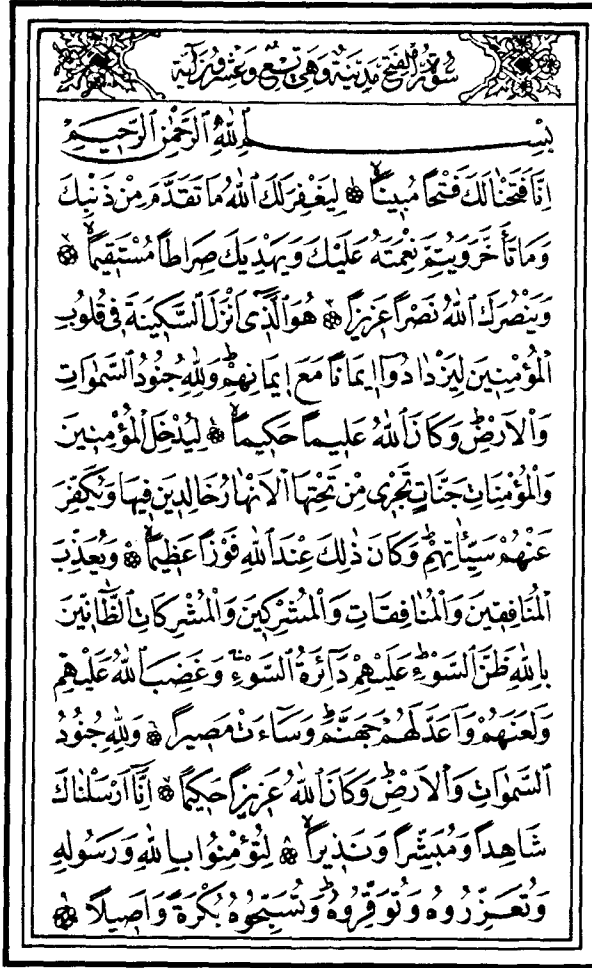 سُورَةُ الْفَتْحِ مَدَنِيَّةٌ وَهِيَ تِسْعٌ وَعِشْرُونَ اٰيَةً
بِسْمِ اللّٰهِ الرَّحْمٰنِ الرَّحِيمِ
اِنَّا فَتَحْنَا لَكَ فَتْحاً مُبٖيناًۙ ۞ لِيَغْفِرَ لَكَ اللّٰهُ مَا تَقَدَّمَ مِنْ ذَنْبِكَ
وَمَا تَاَخَّرَ وَيُتِمَّ نِعْمَتَهُ عَلَيْكَ وَيَهْدِيَكَ صِرَاطاً مُسْتَقٖيماًۙ ۞
وَيَنْصُرَكَ اللّٰهُ نَصْراً عَزٖيزاً ۞ هُوَ الَّذٖٓى اَنْزَلَ السَّكٖينَةَ فٖى قُلُوبِ
الْمُؤْمِنٖينَ لِيَزْدَادُٓوا اٖيمَاناً مَعَ اٖيمَانِهِمْؕ وَلِلّٰهِ جُنُودُ السَّمٰوَاتِ
وَالْاَرْضِؕ وَكَانَ اللّٰهُ عَلٖيماً حَكٖيماًۙ ۞ لِيُدْخِلَ الْمُؤْمِنٖينَ
وَالْمُؤْمِنَاتِ جَنَّاتٍ تَجْرٖى مِنْ تَحْتِهَا الْاَنْهَارُ خَالِدٖينَ فٖيهَا وَيُكَفِّرَ
عَنْهُمْ سَيِّـَٔاتِهِمْؕ وَكَانَ ذٰلِكَ عِنْدَ اللّٰهِ فَوْزاً عَظٖيماًۙ ۞ وَيُعَذِّبَ
الْمُنَافِقٖينَ وَالْمُنَافِقَاتِ وَالْمُشْرِكٖينَ وَالْمُشْرِكَاتِ الظَّٓانّٖينَ
بِاللّٰهِ ظَنَّ السَّوْءِؕ عَلَيْهِمْ دَٓائِرَةُ السَّوْءِۚ وَغَضِبَ اللّٰهُ عَلَيْهِمْ
وَلَعَنَهُمْ وَاَعَدَّ لَهُمْ جَهَنَّمَؕ وَسَٓاءَتْ مَصٖيراً ۞ وَلِلّٰهِ جُنُودُ
السَّمٰوَاتِ وَالْاَرْضِؕ وَكَانَ اللّٰهُ عَزٖيزاً حَكٖيماً ۞ اِنَّٓا اَرْسَلْنَاكَ
شَاهِداً وَمُبَشِّراً وَنَذٖيراًۙ ۞ لِتُؤْمِنُوا بِاللّٰهِ وَرَسُولِهٖ
وَتُعَزِّرُوهُ وَتُوَقِّرُوهُؕ وَتُسَبِّحُوهُ بُكْرَةً وَاَصٖيلاً ۞